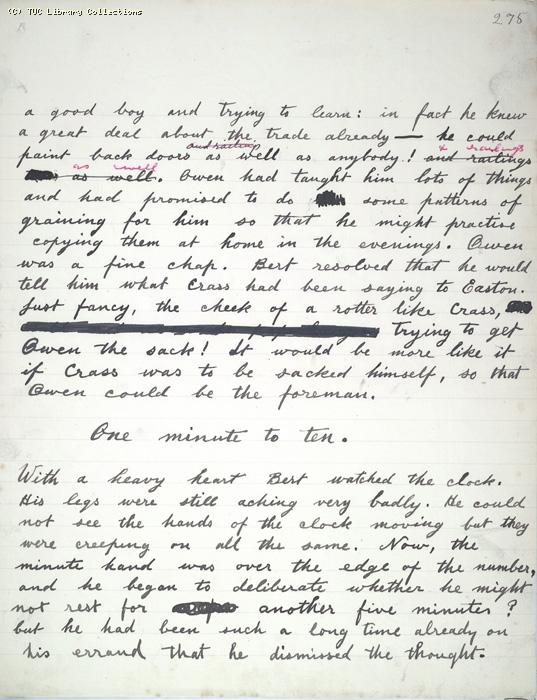 (C) TUC Library Collections
275
a good boy and trying to learn: in fact he knew
a great deal about the trade already — he could
and railings & railings
paint back doors as well as anybody! and railings
as well
as well. Owen had taught him lots of things
and had promised to do some patterns of
graining for him so that he might practise
copying them at home in the evenings. Owen
was a fine chap. Bert resolved that he would
tell him what Crass had been saying to Easton.
Just fancy, the cheek of a rotter like Crass,
trying to get
Owen the sack! It would be more like it
if Crass was to be sacked himself, so that
Owen could be the foreman.
One minute to ten.
With a heavy heart Bert watched the clock.
His legs were still aching very badly. He could
not see the hands of the clock moving but they
were creeping on all the same. Now, the
minute hand was over the edge of the number,
and he began to deliberate whether he might
not rest for another five minutes?
but he had been such a long time already on
his errand that he dismissed the thought.